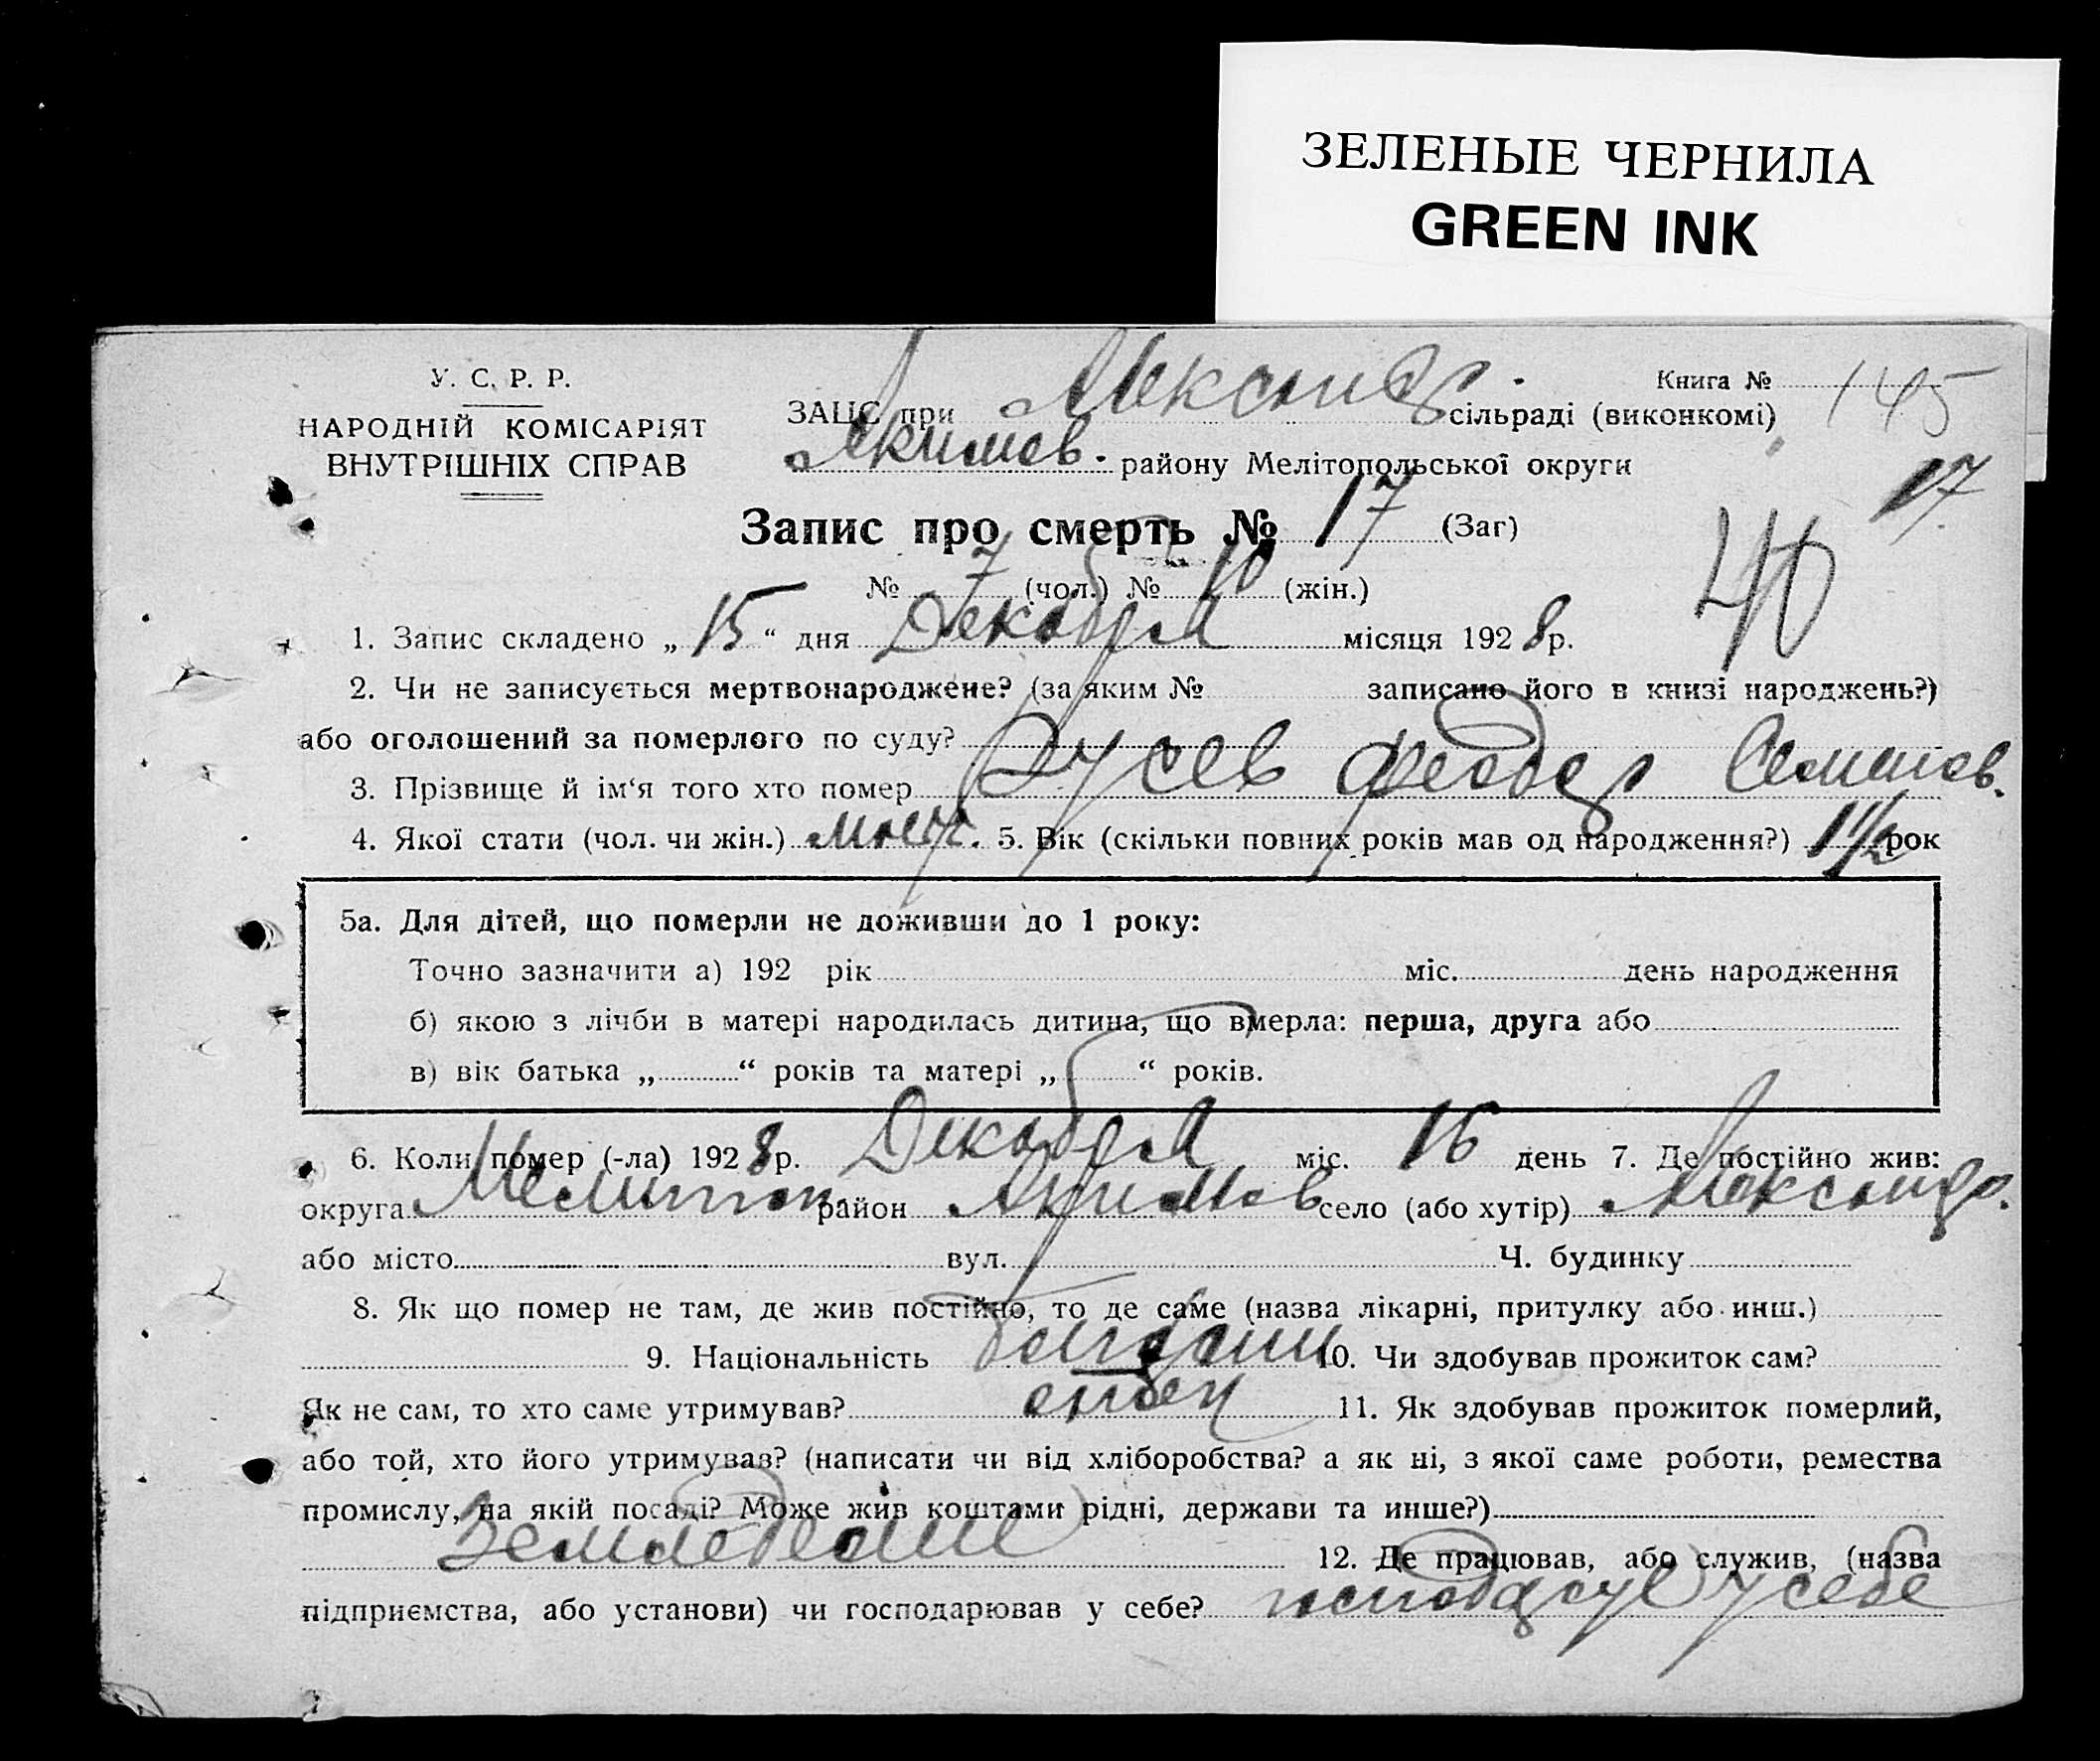 ЗЕЛЕНЫЕ ЧЕРНИЛА
GREEN INK
У. С. Р. Р.
НАРОДНІЙ КОМІСАРІЯТ
ВНУТРІШНІХ СПРАВ
Книга № 145
ЗАЦС при Александр. сільраді (виконкомі)
Якимов. району Мелітопольської округи
17
Запис про смерть № 17 (Заг)
40
№ 7 (чол.) № 10 (жін.)
1. Запис складено „ 15 “ дня Декабря місяця 1928 р.
2. Чи не записується мертвонароджене? (за яким № записано його в книзі народжень?)
або оголошений за померлого по суду?
3. Прізвище й ім‘я того хто помер Гусев Феодор Семенов.
4. Якої стати (чол. чи жін.) муж. 5. Вік (скільки повних років мав од народження?) 1 1/2 рок
5а. Для дітей, що померли не доживши до 1 року:
Точно зазначити а) 192 рік міс. день народження
б) якою з лічби в матері народилась дитина, що вмерла: перша, друга або
в) вік батька „ “ років та матері „ “ років.
6. Коли помер (-ла) 1928 р. Декабря міс. 16 день 7. Де постійно жив:
округа Мелитоп. район Акимов село (або хутір) Александр.
або місто вул. Ч. будинку
8. Як що помер не там, де жив постійно, то де саме (назва лікарні, притулку або инш.)
9. Національність болгарин 10. Чи здобував прожиток сам?
Як не сам, то хто саме утримував? отец 11. Як здобував прожиток померлий,
або той, хто його утримував? (написати чи від хліборобства? а як ні, з якої саме роботи, ремества
промислу, на якій посаді? Може жив коштами рідні, держави та инше?)
Земледелие 12. Де працював, або служив, (назва
підприємства, або установи) чи господарював у себе? у себе